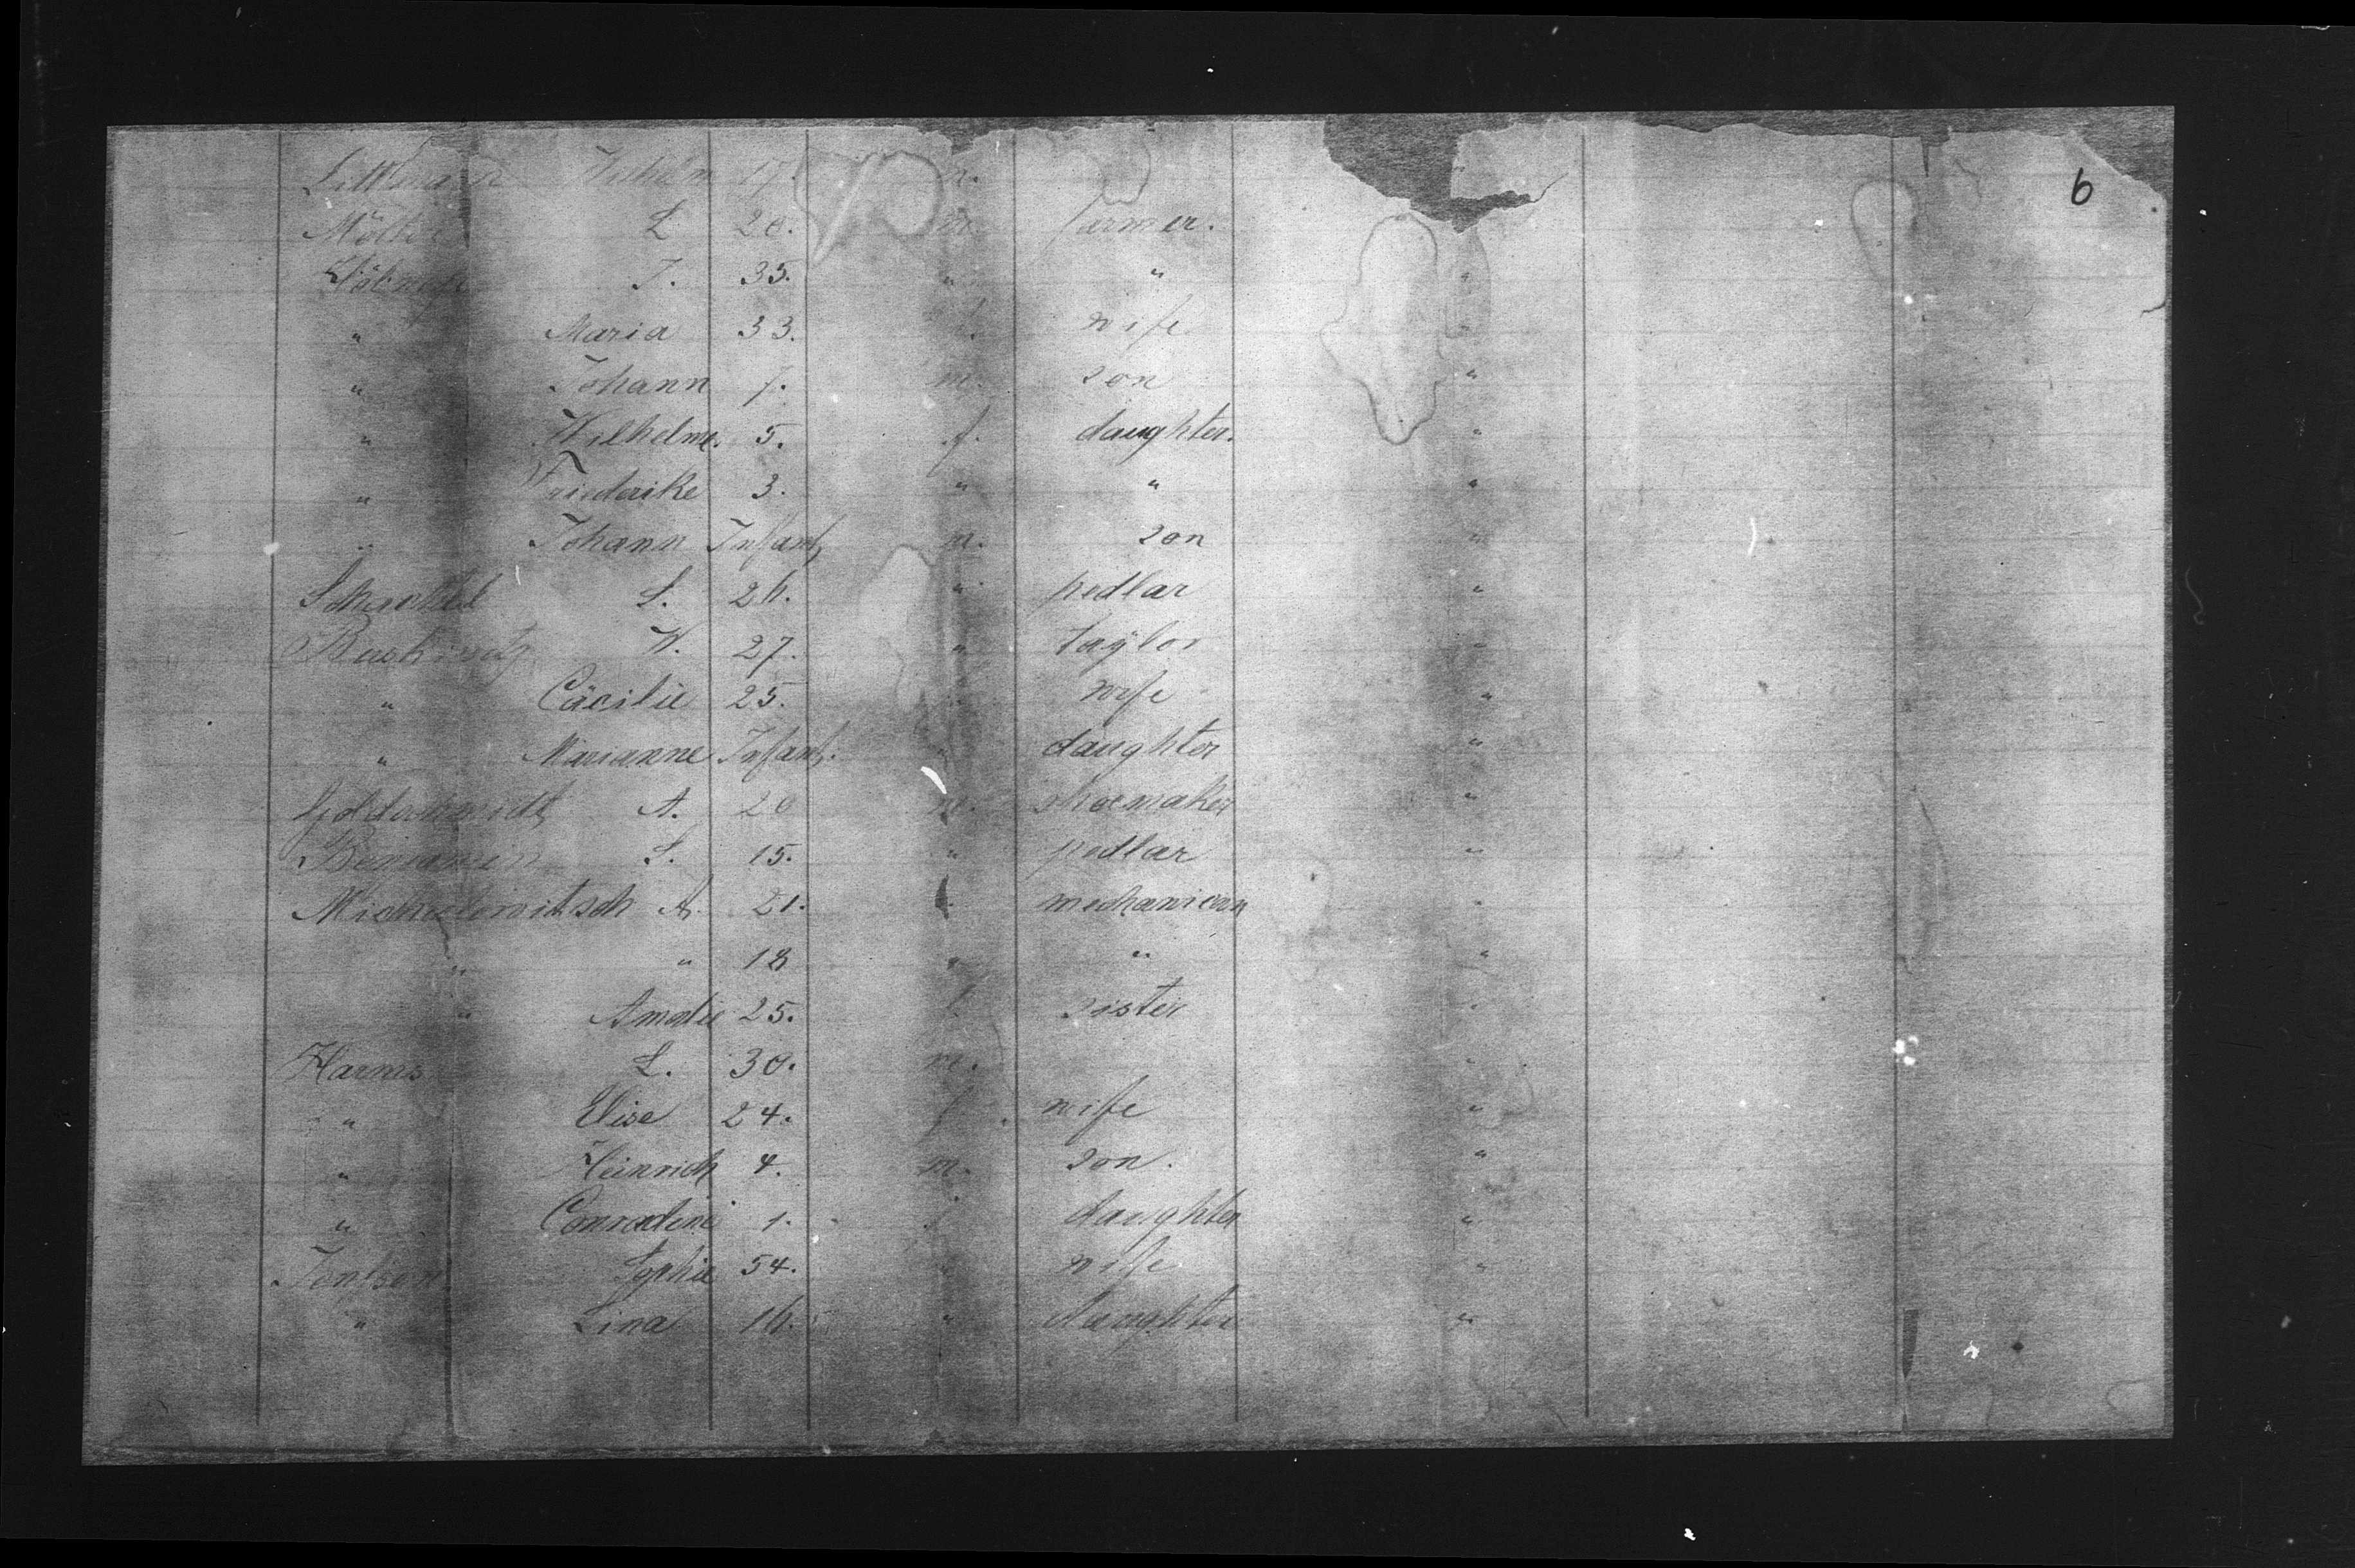 6
Littmann Wilhelm 17. m. "
L. 20. m. farmer.
J. 35. " " "
" Maria 33. f. wife "
" Johann 7. m. son "
" Wilhelme. 5. f. daughter. "
" Friederike 3. " " "
" Johann Infant m. son "
S. 26. " pedlar "
W. 27. " taylor "
" Cäcilie 25. wife "
" Marianne Infant. " daughter "
Goldschmidt A. 20 m. shoemaker "
Benjamin S. 15. " pedlar "
Michelewitsch A. 21. " mechanican "
" " 18 " " "
" Amalie 25. f. sister "
Harms L. 30. m. "
" Elise 24. f. wife "
" Heinrich 4. m. son. "
" Conradine 1. f. daughter "
Sophie 54. " wife. "
" Lina 16. " daughter "